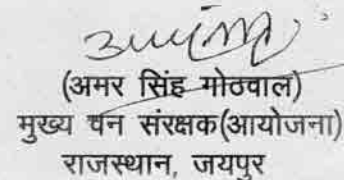 (अमर सिंह गोठवाल)
मुख्य वन संरक्षक(आयोजना)
राजस्थान, जयपुर